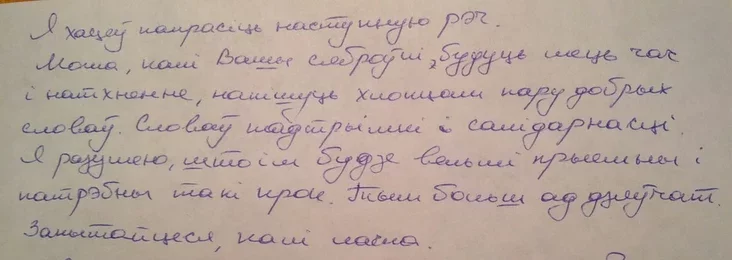 Я хацеў папрасіць наступную рэч.
Можа, калі Вашы сяброўкі, будуць мець час
і натхненне, напішуць хлопцам пару добрых
словаў. Словаў падтрымкі і салідарнасці.
Я разумею, што ім будзе вельмі прыемны і
патрэбны такі крок. Тым больш ад дзяўчат.
Запытайцеся, калі ласка.